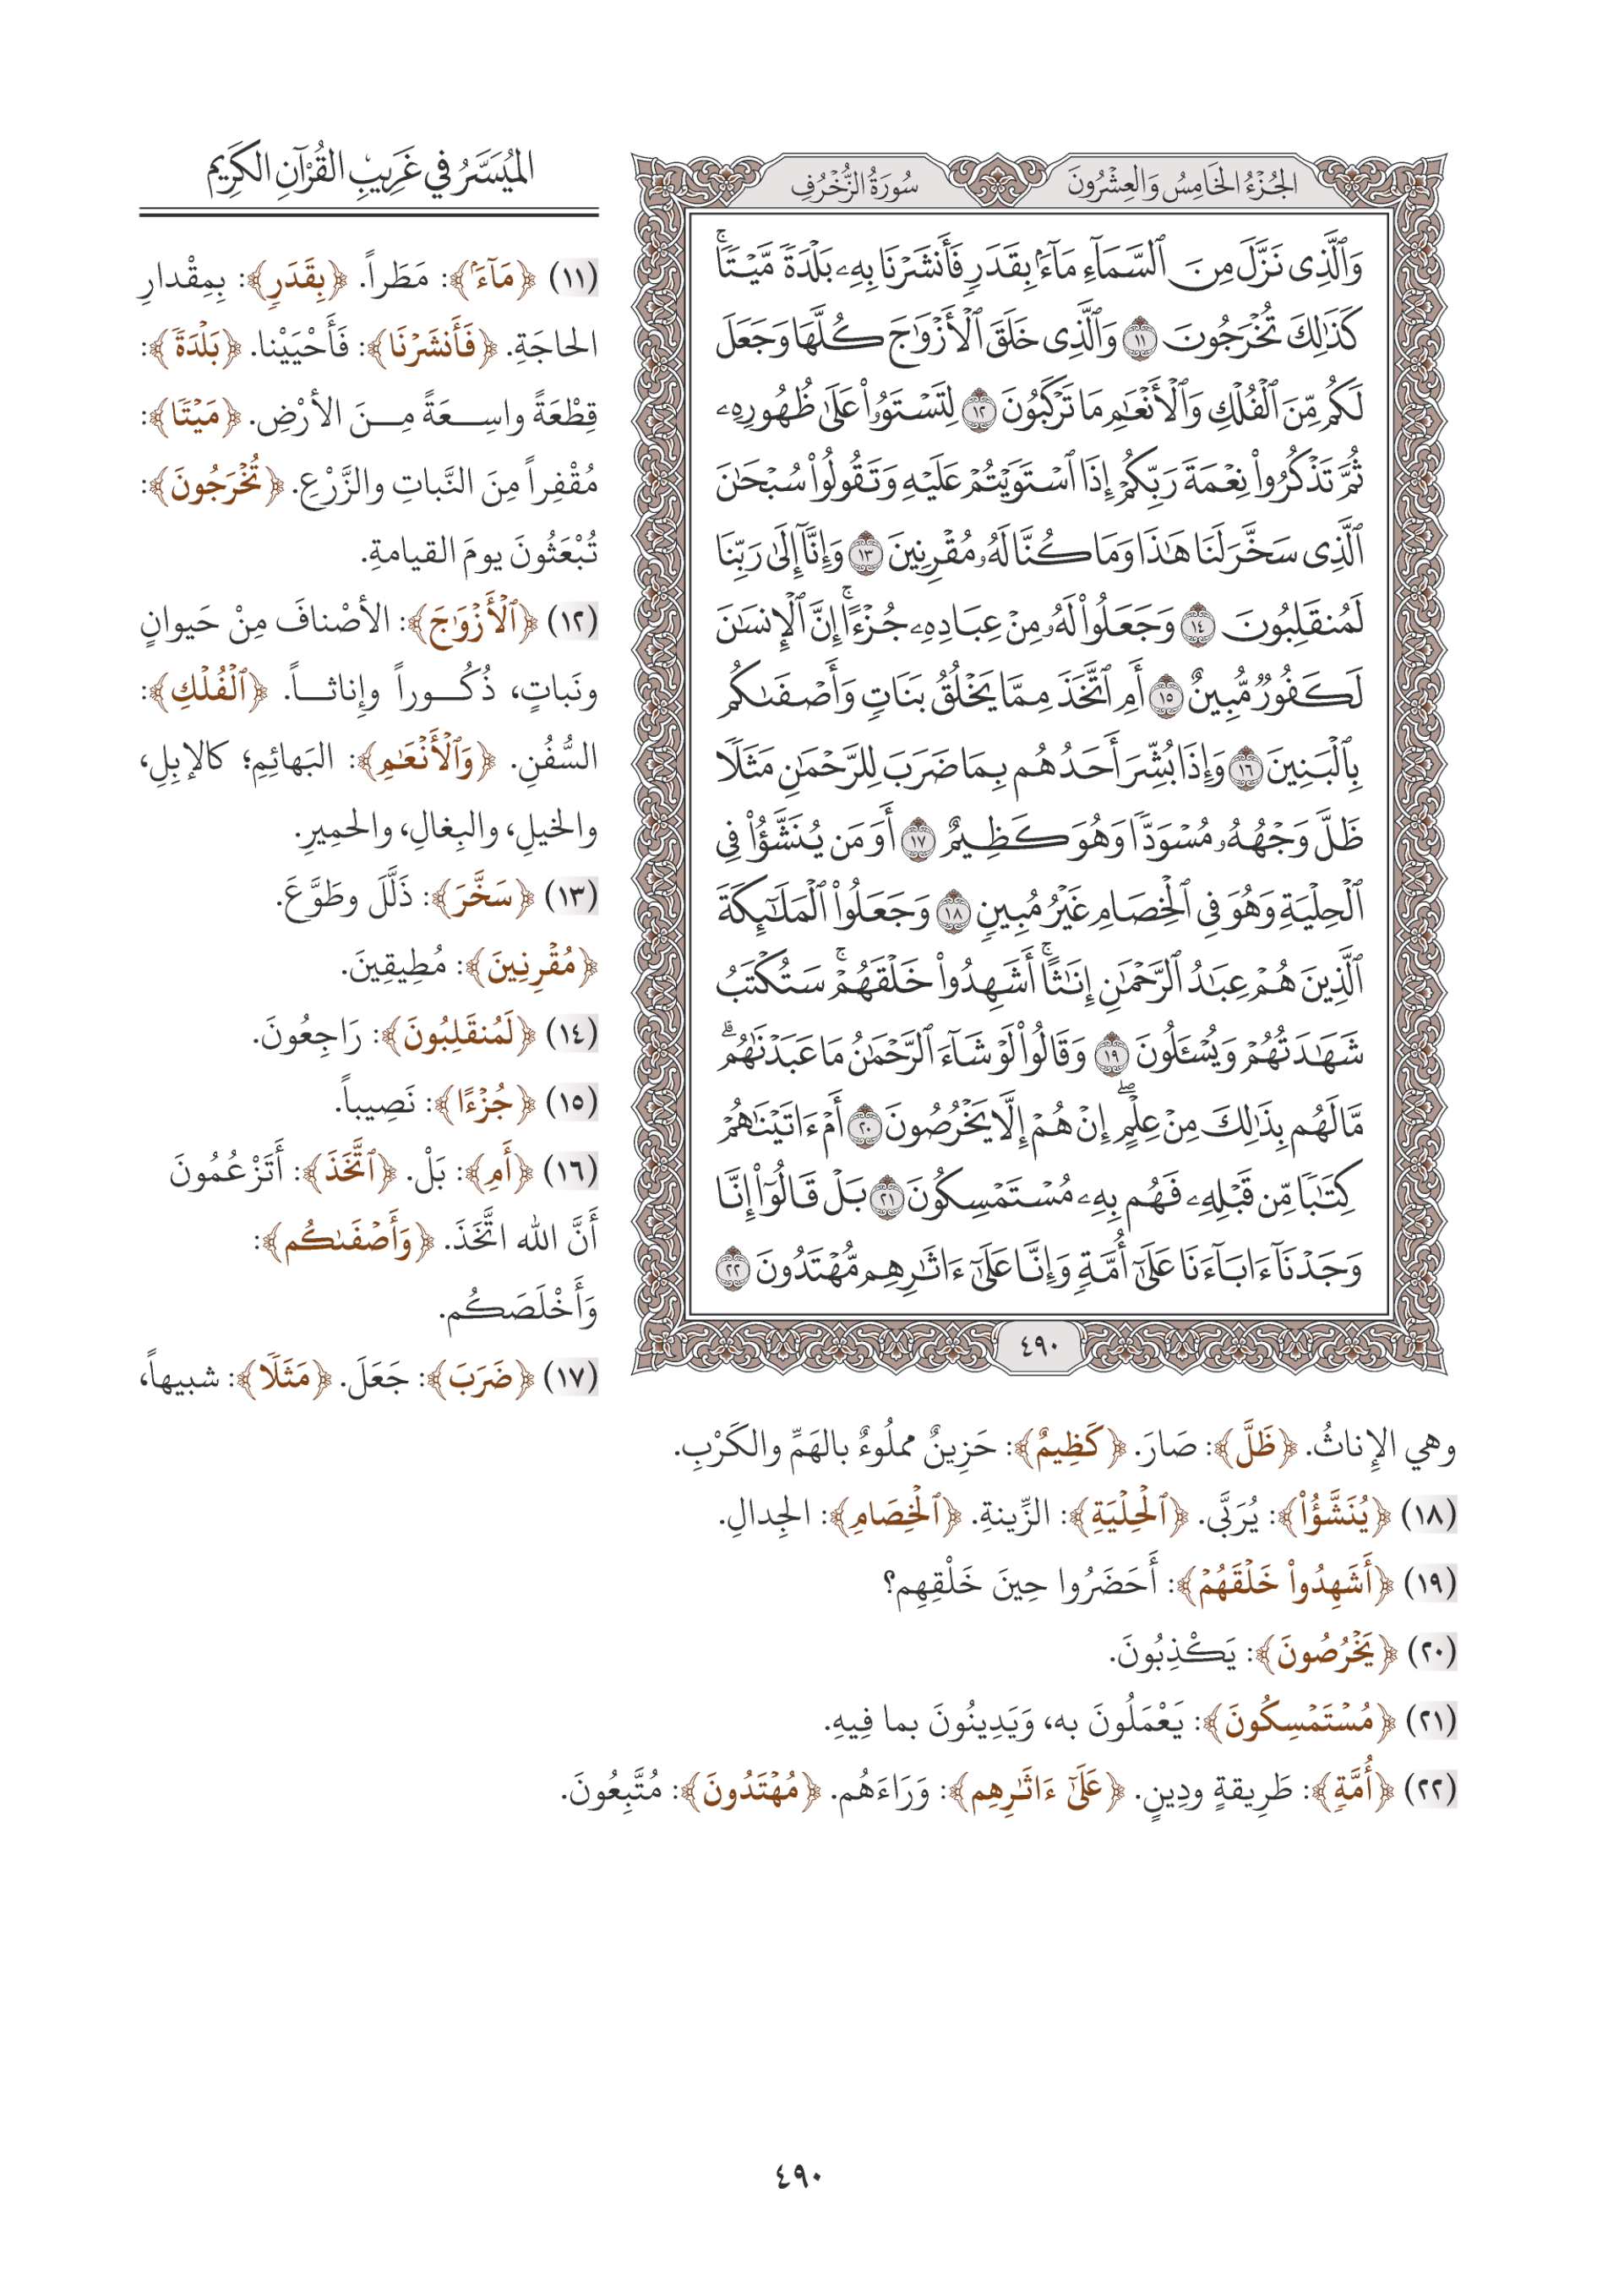 الجُزْءُ الخَامِسُ وَالعِشْرُونَ
سُورَةُ الزُّخْرُفِ
وَٱلَّذِى نَزَّلَ مِنَ ٱلسَّمَآءِ مَآءَۢ بِقَدَرٖ فَأَنشَرْنَا بِهِۦ بَلْدَةٗ مَّيْتٗاۚ
كَذَٰلِكَ تُخْرَجُونَ ١١ وَٱلَّذِى خَلَقَ ٱلْأَزْوَٰجَ كُلَّهَا وَجَعَلَ
لَكُم مِّنَ ٱلْفُلْكِ وَٱلْأَنْعَٰمِ مَا تَرْكَبُونَ ١٢ لِتَسْتَوُۥا۟ عَلَىٰ ظُهُورِهِۦ
ثُمَّ تَذْكُرُوا۟ نِعْمَةَ رَبِّكُمْ إِذَا ٱسْتَوَيْتُمْ عَلَيْهِ وَتَقُولُوا۟ سُبْحَٰنَ
ٱلَّذِى سَخَّرَ لَنَا هَٰذَا وَمَا كُنَّا لَهُۥ مُقْرِنِينَ ١٣ وَإِنَّآ إِلَىٰ رَبِّنَا
لَمُنقَلِبُونَ ١٤ وَجَعَلُوا۟ لَهُۥ مِنْ عِبَادِهِۦ جُزْءًاۚ إِنَّ ٱلْإِنسَٰنَ
لَكَفُورٞ مُّبِينٌ ١٥ أَمِ ٱتَّخَذَ مِمَّا يَخْلُقُ بَنَاتٖ وَأَصْفَىٰكُم
بِٱلْبَنِينَ ١٦ وَإِذَا بُشِّرَ أَحَدُهُم بِمَا ضَرَبَ لِلرَّحْمَٰنِ مَثَلٗا
ظَلَّ وَجْهُهُۥ مُسْوَدّٗا وَهُوَ كَظِيمٌ ١٧ أَوَمَن يُنَشَّؤُا۟ فِى
ٱلْحِلْيَةِ وَهُوَ فِى ٱلْخِصَامِ غَيْرُ مُبِينٖ ١٨ وَجَعَلُوا۟ ٱلْمَلَٰٓئِكَةَ
ٱلَّذِينَ هُمْ عِبَٰدُ ٱلرَّحْمَٰنِ إِنَٰثًاۚ أَشَهِدُوا۟ خَلْقَهُمْۚ سَتُكْتَبُ
شَهَٰدَتُهُمْ وَيُسْـَٔلُونَ ١٩ وَقَالُوا۟ لَوْ شَآءَ ٱلرَّحْمَٰنُ مَا عَبَدْنَٰهُمۗ
مَّا لَهُم بِذَٰلِكَ مِنْ عِلْمٍۖ إِنْ هُمْ إِلَّا يَخْرُصُونَ ٢٠ أَمْ ءَاتَيْنَٰهُمْ
كِتَٰبٗا مِّن قَبْلِهِۦ فَهُم بِهِۦ مُسْتَمْسِكُونَ ٢١ بَلْ قَالُوٓا۟ إِنَّا
وَجَدْنَآ ءَابَآءَنَا عَلَىٰٓ أُمَّةٖ وَإِنَّا عَلَىٰٓ ءَاثَٰرِهِم مُّهْتَدُونَ ٢٢
٤٩٠
المُيَسَّرُ في غَرِيبِ القُرْآنِ الكَرِيمِ
(١١) ﴿مَآءَۢ﴾: مَطَراً. ﴿بِقَدَرٖ﴾: بِمِقْدارِ
الحاجَةِ. ﴿فَأَنشَرْنَا﴾: فَأَحْيَيْنا. ﴿بَلْدَةٗ﴾:
قِطْعَةً واسِعَةً مِنَ الأرْضِ. ﴿مَيْتٗا﴾:
مُقْفِراً مِنَ النَّباتِ والزَّرْعِ. ﴿تُخْرَجُونَ﴾:
تُبْعَثُونَ يومَ القيامةِ.
(١٢) ﴿ٱلْأَزْوَٰجَ﴾: الأصْنافَ مِنْ حَيوانٍ
ونَباتٍ، ذُكُوراً وإِناثاً. ﴿ٱلْفُلْكِ﴾:
السُّفُنِ. ﴿وَٱلْأَنْعَٰمِ﴾: البَهائِمِ؛ كالإبِلِ،
والخيلِ، والبِغالِ، والحمِيرِ.
(١٣) ﴿سَخَّرَ﴾: ذَلَّلَ وطَوَّعَ.
﴿مُقْرِنِينَ﴾: مُطِيقِينَ.
(١٤) ﴿لَمُنقَلِبُونَ﴾: رَاجِعُونَ.
(١٥) ﴿جُزْءًا﴾: نَصِيباً.
(١٦) ﴿أَمِ﴾: بَلْ. ﴿ٱتَّخَذَ﴾: أَتَزْعُمُونَ
أَنَّ الله اتَّخَذَ. ﴿وَأَصْفَىٰكُم﴾:
وَأَخْلَصَكُم.
(١٧) ﴿ضَرَبَ﴾: جَعَلَ. ﴿مَثَلٗا﴾: شبيهاً،
وهي الإِناثُ. ﴿ظَلَّ﴾: صَارَ. ﴿كَظِيمٌ﴾: حَزِينٌ مملُوءٌ بالهَمِّ والكَرْبِ.
(١٨) ﴿يُنَشَّؤُا۟﴾: يُرَبَّى. ﴿ٱلْحِلْيَةِ﴾: الزِّينةِ. ﴿ٱلْخِصَامِ﴾: الجِدالِ.
(١٩) ﴿أَشَهِدُوا۟ خَلْقَهُمْ﴾: أَحَضَرُوا حِينَ خَلْقِهِم؟
(٢٠) ﴿يَخْرُصُونَ﴾: يَكْذِبُونَ.
(٢١) ﴿مُسْتَمْسِكُونَ﴾: يَعْمَلُونَ به، وَيَدِينُونَ بما فِيهِ.
(٢٢) ﴿أُمَّةٖ﴾: طَرِيقةٍ ودِينٍ. ﴿عَلَىٰٓ ءَاثَٰرِهِم﴾: وَرَاءَهُم. ﴿مُهْتَدُونَ﴾: مُتَّبِعُونَ.
٤٩٠